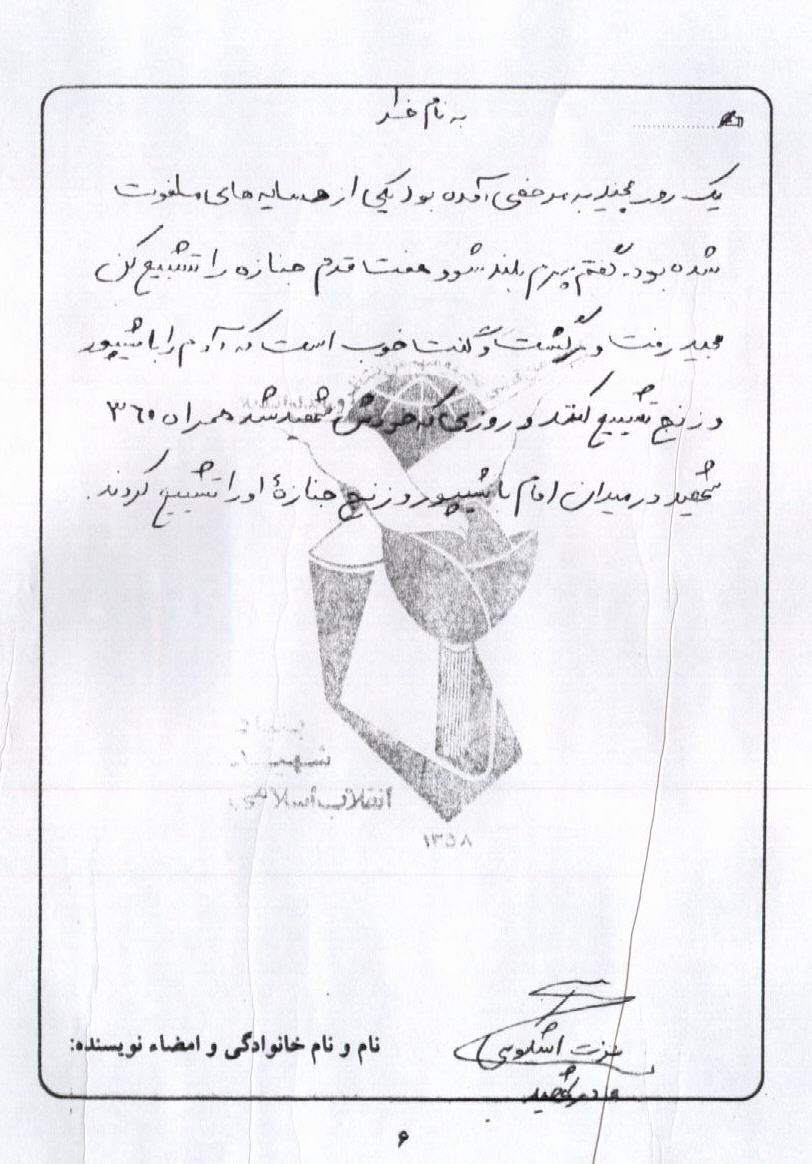 به نام خدا
یک روز مجید به مرخصی آمده بود یکی از همسایه های ما فوت
شده بود. گفتم پسرم بلند شو و هفت قدم جنازه را تشییع کن
مجید رفت و برگشت و گفت خوب است که آدم را با شیپور
و زنج تشییع کنند و روزی که خودش شهید شد همراه ۳۶۰
شهید در میدان امام با شیپور و زنج جنازهٔ او را تشییع کردند.
بنیاد
شهید
انقلاب اسلامی
۱۳۵۸
عزت اشکوسی
مادر شهید
نام و نام خانوادگی و امضاء نویسنده:
۶